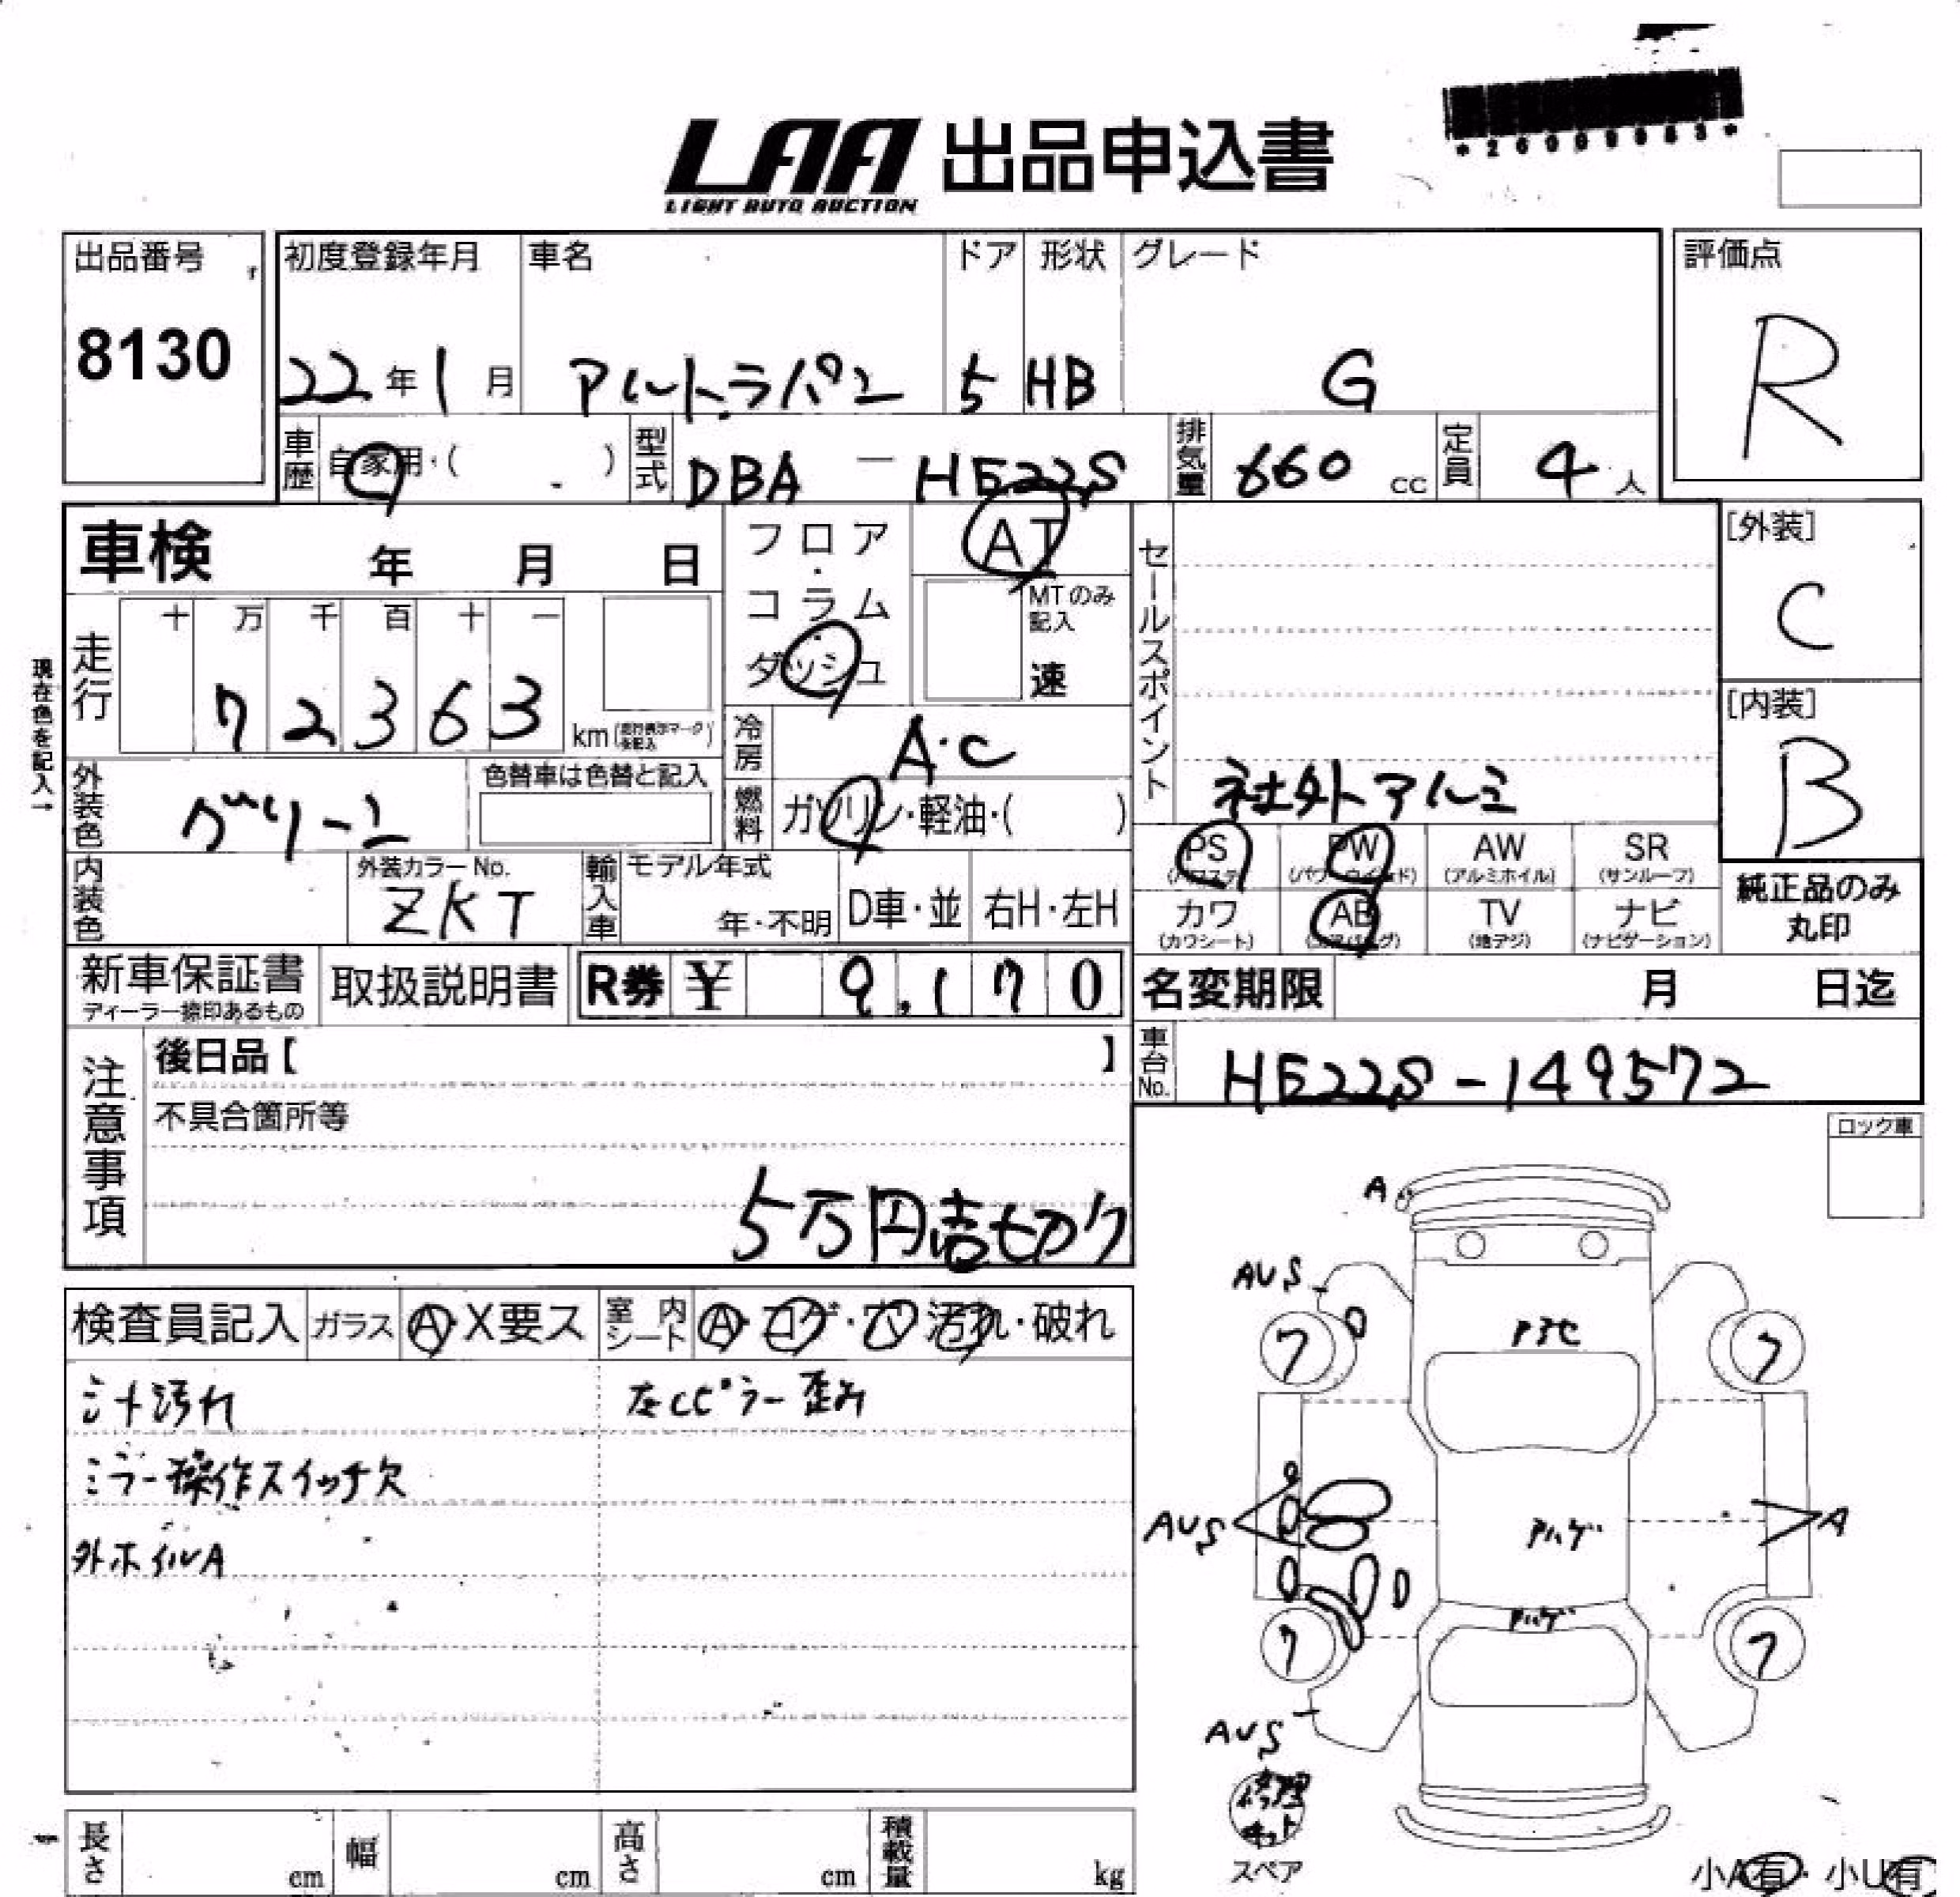 LAA 出品申込書
LIGHT AUTO AUCTION
出品番号
8130
初度登録年月
22年1月
車名
アルトラパン
ドア
5
形状
HB
グレード
G
評価点
R
車歴
自家用・( )
型式
DBA - HE22S
排気量
660 cc
定員
4 人
車検 年 月 日
フロア・コラム・ダッシュ
AT
MTのみ記入
速
セールスポイント
社外アルミ
[外装]
C
[内装]
B
現在色を記入→
走行
十 万 千 百 十 一
7 2 3 6 3
km
冷房
A.C
外装色
グリーン
色替車は色替と記入
燃料
ガソリン・軽油・( )
内装色
外装カラーNo.
ZKT
輸入車
モデル年式
年・不明
D車・並
右H・左H
PS
PW
AW
(アルミホイル)
SR
(サンルーフ)
カワ
(カワシート)
AB
TV
(地デジ)
ナビ
(ナビゲーション)
純正品のみ
丸印
新車保証書
ディーラー捺印あるもの
取扱説明書
R券 ¥ 9,170
名変期限 月 日迄
車台No.
HE22S-149572
注意事項
後日品【 】
不具合箇所等
5万円売切り
ロック車
検査員記入
ガラス
A・X要ス
室内シート
A・コゲ・穴・汚れ・破れ
シート汚れ
左Cピラー歪み
ミラー操作スイッチ欠
外ホイルA
A
AUS
7
7
AUS
A
アハゲ
アハゲ
7
7
AUS
修理キット
スペア
小A有・小U有
長さ cm
幅 cm
高さ cm
積載量 kg